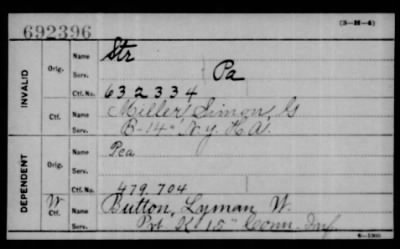 (3-H-4)
692396
INVALID
Orig.
Name Str
Serv. Pa
Ctf. No. 632334
Ctf.
Name Miller, Simon G
Serv. B-14" N.Y. H.A.
DEPENDENT
Orig.
Name Pea
Serv.
Ctf. No. 479,704
W Ctf.
Name Button, Lyman W.
Serv. Pvt K 15" Conn. Inf